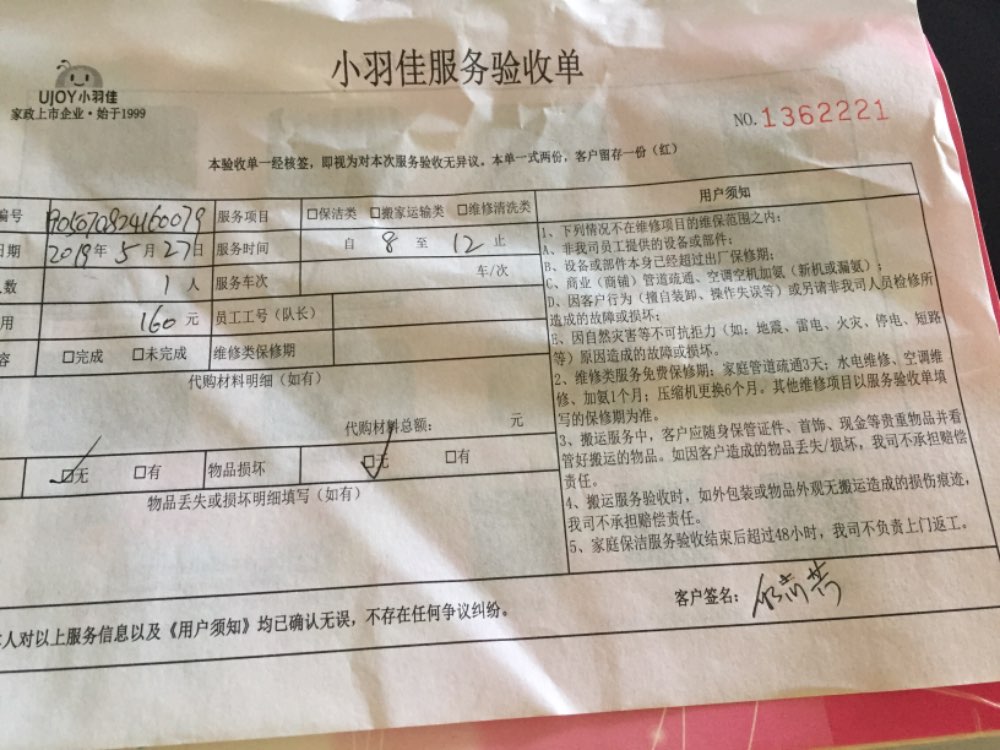 小羽佳服务验收单
UJOY小羽佳
家政上市企业·始于1999
NO.1362221
本验收单一经核签，即视为对本次服务验收无异议。本单一式两份，客户留存一份（红）
编号 905070824160079 服务项目 □保洁类 □搬家运输类 □维修清洗类
日期 2019年5月27日 服务时间 自 8 至 12 止
人数 1 人 服务车次 车/次
用 160 元 员工工号（队长）
容 □完成 □未完成 维修类保修期
代购材料明细（如有）
代购材料总额： 元
☑无 □有 物品损坏 ☑无 □有
物品丢失或损坏明细填写（如有）
用户须知
1、下列情况不在维修项目的维保范围之内：
A、非我司员工提供的设备或部件；
B、设备或部件本身已经超过出厂保修期；
C、商业（商铺）管道疏通、空调空机加氨（新机或漏氨）；
D、因客户行为（擅自装卸、操作失误等）或另请非我司人员检修所
造成的故障或损坏；
E、因自然灾害等不可抗拒力（如：地震、雷电、火灾、停电、短路
等）原因造成的故障或损坏。
2、维修类服务免费保修期：家庭管道疏通3天；水电维修、空调维
修、加氨1个月；压缩机更换6个月。其他维修项目以服务验收单填
写的保修期为准。
3、搬运服务中，客户应随身保管证件、首饰、现金等贵重物品并看
管好搬运的物品。如因客户造成的物品丢失/损坏，我司不承担赔偿
责任。
4、搬运服务验收时，如外包装或物品外观无搬运造成的损伤痕迹，
我司不承担赔偿责任。
5、家庭保洁服务验收结束后超过48小时，我司不负责上门返工。
本人对以上服务信息以及《用户须知》均已确认无误，不存在任何争议纠纷。
客户签名：